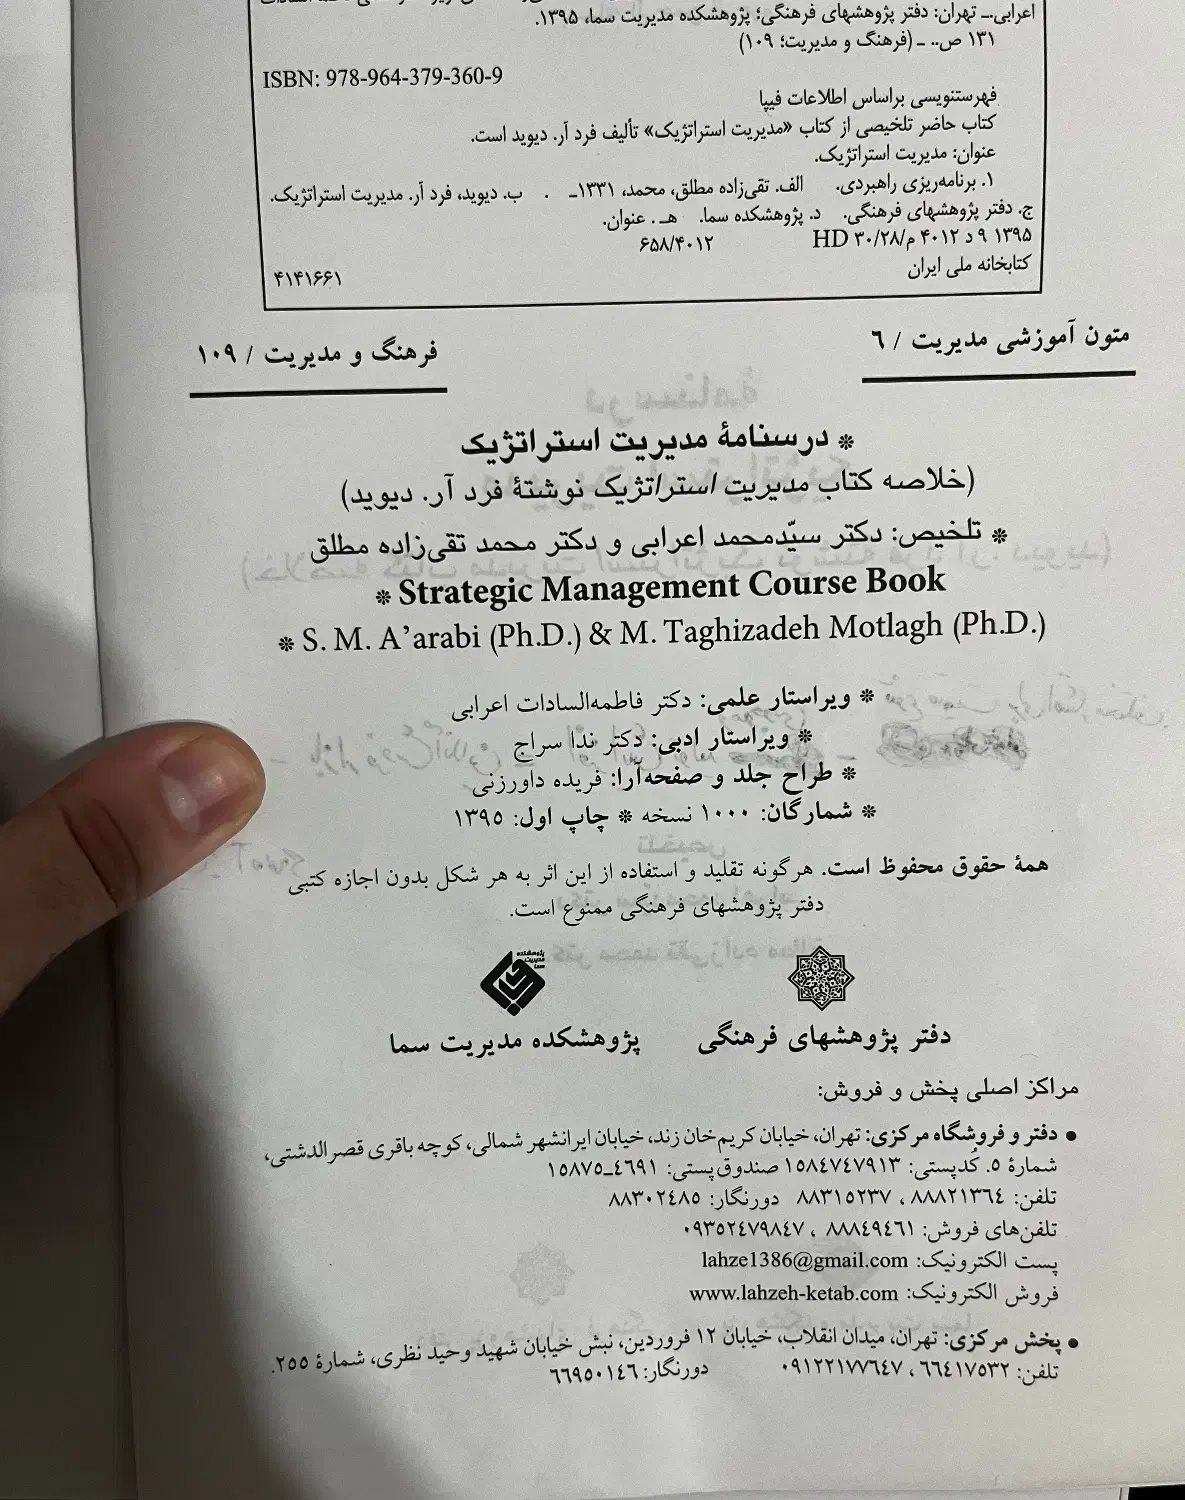 اعرابی.ـ تهران: دفتر پژوهشهای فرهنگی؛ پژوهشکده مدیریت سما، ۱۳۹۵.
۱۳۱ ص.. ـ (فرهنگ و مدیریت؛ ۱۰۹)
ISBN: 978-964-379-360-9
فهرستنویسی براساس اطلاعات فیپا
کتاب حاضر تلخیصی از کتاب «مدیریت استراتژیک» تألیف فرد آر. دیوید است.
عنوان: مدیریت استراتژیک.
۱. برنامه‌ریزی راهبردی. الف. تقی‌زاده مطلق، محمد، ۱۳۳۱ـ . ب. دیوید، فرد آر. مدیریت استراتژیک.
ج. دفتر پژوهشهای فرهنگی. د. پژوهشکده سما. هـ . عنوان.
۱۳۹۵ ۹ د ۴۰۱۲ م/۳۰/۲۸ HD ۶۵۸/۴۰۱۲
کتابخانه ملی ایران ۴۱۴۱۶۶۱
متون آموزشی مدیریت / ٦ فرهنگ و مدیریت / ۱۰۹
❊ درسنامهٔ مدیریت استراتژیک
(خلاصه کتاب مدیریت استراتژیک نوشتهٔ فرد آر. دیوید)
❊ تلخیص: دکتر سیّدمحمد اعرابی و دکتر محمد تقی‌زاده مطلق
❊ Strategic Management Course Book
❊ S. M. A’arabi (Ph.D.) & M. Taghizadeh Motlagh (Ph.D.)
❊ ویراستار علمی: دکتر فاطمه‌السادات اعرابی
❊ ویراستار ادبی: دکتر ندا سراج
❊ طراح جلد و صفحه‌آرا: فریده داورزنی
❊ شمارگان: ۱۰۰۰ نسخه ❊ چاپ اول: ۱۳۹۵
همهٔ حقوق محفوظ است. هرگونه تقلید و استفاده از این اثر به هر شکل بدون اجازه کتبی
دفتر پژوهشهای فرهنگی ممنوع است.
پژوهشکده
مدیریت
سما
دفتر پژوهشهای فرهنگی پژوهشکده مدیریت سما
مراکز اصلی پخش و فروش:
● دفتر و فروشگاه مرکزی: تهران، خیابان کریم‌خان زند، خیابان ایرانشهر شمالی، کوچه باقری قصرالدشتی،
شمارهٔ ۵. کُدپستی: ۱۵۸٤۷٤۷۹۱۳ صندوق‌پستی: ٤٦۹۱ـ۱۵۸۷۵
تلفن: ۸۸۸۲۱۳٦٤ ، ۸۸۳۱۵۲۳۷ دورنگار: ۸۸۳۰۲٤۸۵
تلفن‌های فروش: ۸۸۸٤۹٤٦۱ ، ۰۹۳۵۲٤۷۹۸٤۷
پست الکترونیک: lahze1386@gmail.com
فروش الکترونیک: www.lahzeh-ketab.com
● پخش مرکزی: تهران، میدان انقلاب، خیابان ۱۲ فروردین، نبش خیابان شهید وحید نظری، شمارهٔ ۲۵۵.
تلفن: ٦٦٤۱۷۵۳۲ ، ۰۹۱۲۲۱۷۷٦٤۷ دورنگار: ٦٦۹۵۰۱٤٦